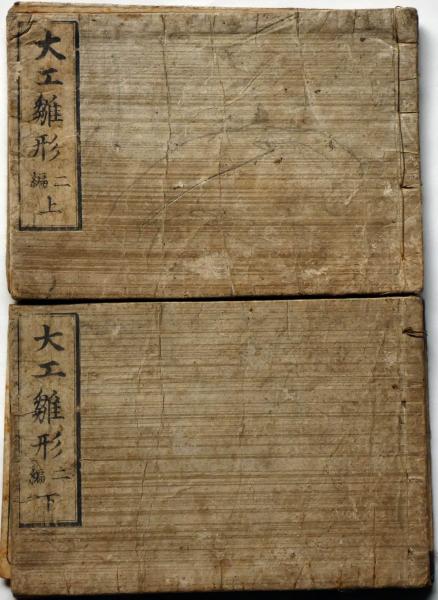 大工雛形
二編
上
大工雛形
二編
下